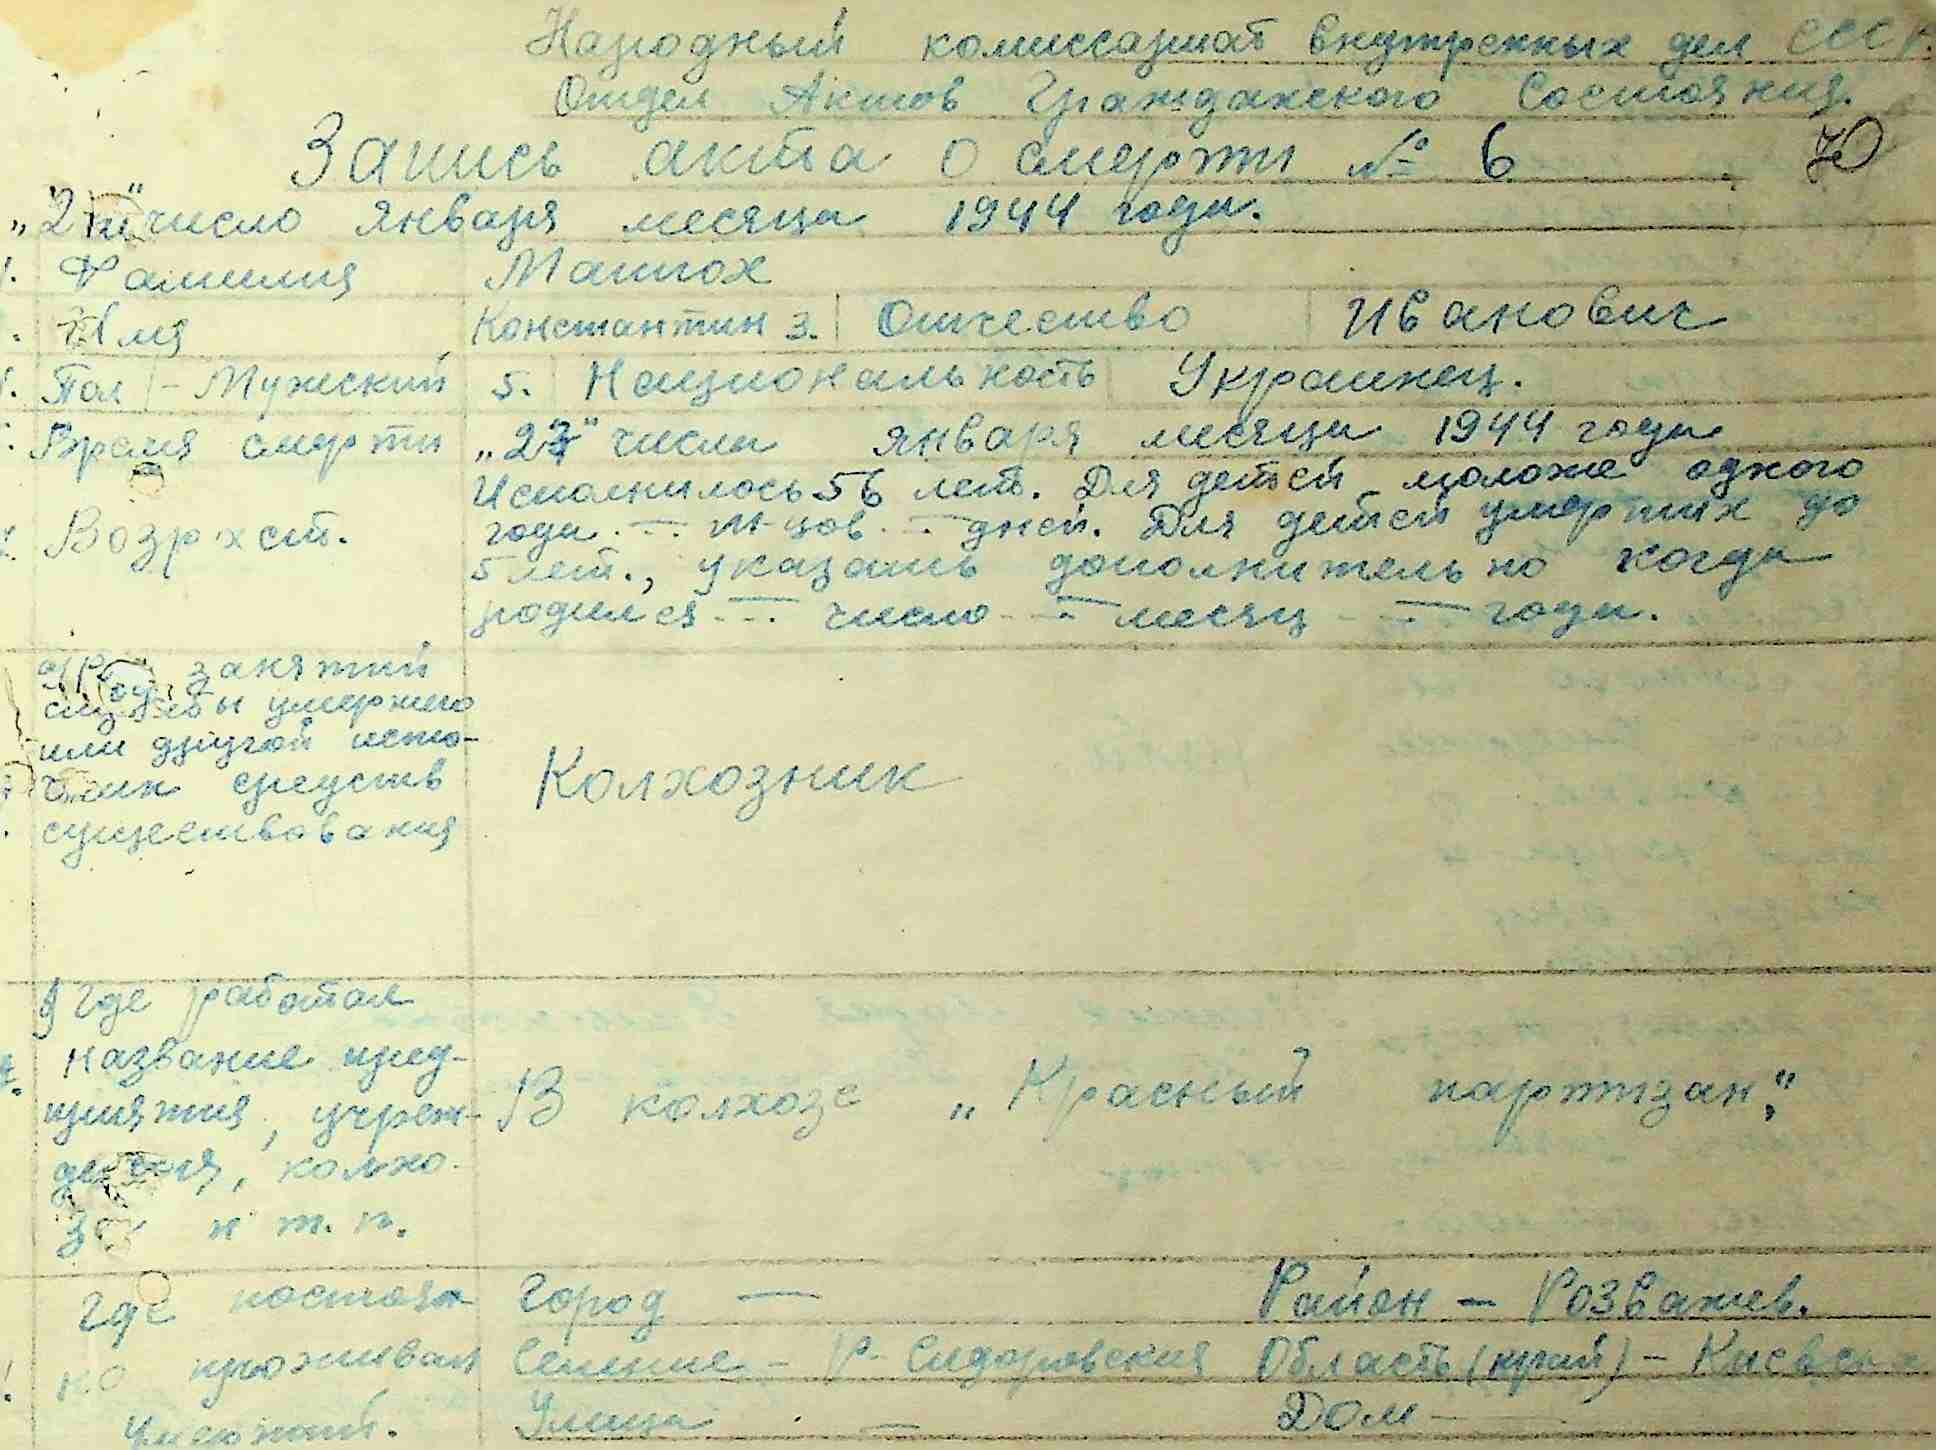 Народный комиссариат внутренных дел СССР.
Отдел Актов Гражданского Состояния.
Запись акта о смерти № 6 70
число января месяца 1944 года.
1. Фамилия Матюх
Имя Константин 3. Отчество Иванович
Пол - Мужский 5. Национальность Украинец.
Время смерти „23" числа января месяца 1944 года
Исполнилось 56 лет. Для детей моложе одного
Возраст. года — м-цов — дней. Для детей умерших до
5 лет., указать дополнительно когда
родился — число — месяц — года.
занятий
службы умершего
или другой исто-
чник средств
существования
Колхозник
9 Где работал
название пред-
приятия, учреж-
дения, колхо-
за и т. п.
В колхозе „Красный партизан"
Где постоян- Город — Район - Розважев.
но проживал Селение - Р-Сидоровская Область (край) - Киевская
Умерший. Улица — Дом -